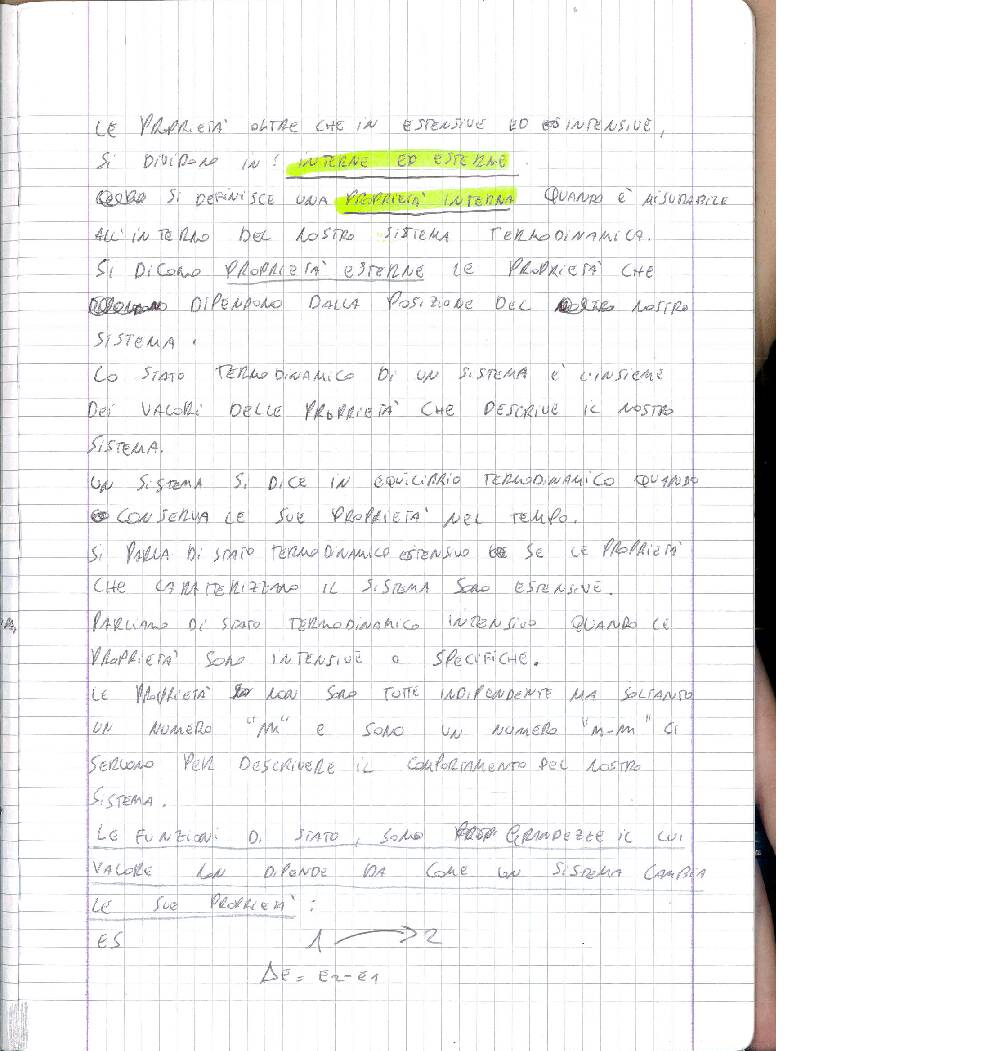 LE PROPRIETA' OLTRE CHE IN ESTENSIVE ED INTENSIVE,
SI DIVIDONO IN: INTERNE ED ESTERNE.
SI DEFINISCE UNA PROPRIETA' INTERNA QUANDO È MISURABILE
ALL'INTERNO DEL NOSTRO SISTEMA TERMODINAMICA.
SI DICONO PROPRIETA' ESTERNE LE PROPRIETA' CHE
DIPENDONO DALLA POSIZIONE DEL NOSTRO
SISTEMA.
LO STATO TERMODINAMICO DI UN SISTEMA È L'INSIEME
DEI VALORI DELLE PROPRIETA' CHE DESCRIVE IL NOSTRO
SISTEMA.
UN SISTEMA SI DICE IN EQUILIBRIO TERMODINAMICO QUANDO
CONSERVA LE SUE PROPRIETA' NEL TEMPO.
SI PARLA DI STATO TERMODINAMICO ESTENSIVO SE LE PROPRIETA'
CHE CARATTERIZZANO IL SISTEMA SONO ESTENSIVE.
PARLIAMO DI STATO TERMODINAMICO INTENSIVO QUANDO LE
PROPRIETA' SONO INTENSIVE O SPECIFICHE.
LE PROPRIETA' NON SONO TUTTE INDIPENDENTE MA SOLTANTO
UN NUMERO "m" E SONO UN NUMERO "n-m" CI
SERVONO PER DESCRIVERE IL COMPORTAMENTO DEL NOSTRO
SISTEMA.
LE FUNZIONI DI STATO, SONO GRANDEZZE IL CUI
VALORE NON DIPENDE DA COME UN SISTEMA CAMBIA
LE SUE PROPRIETA':
ES 1 → 2
ΔE = E2-E1